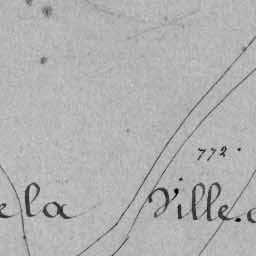 772.
e la Ville.